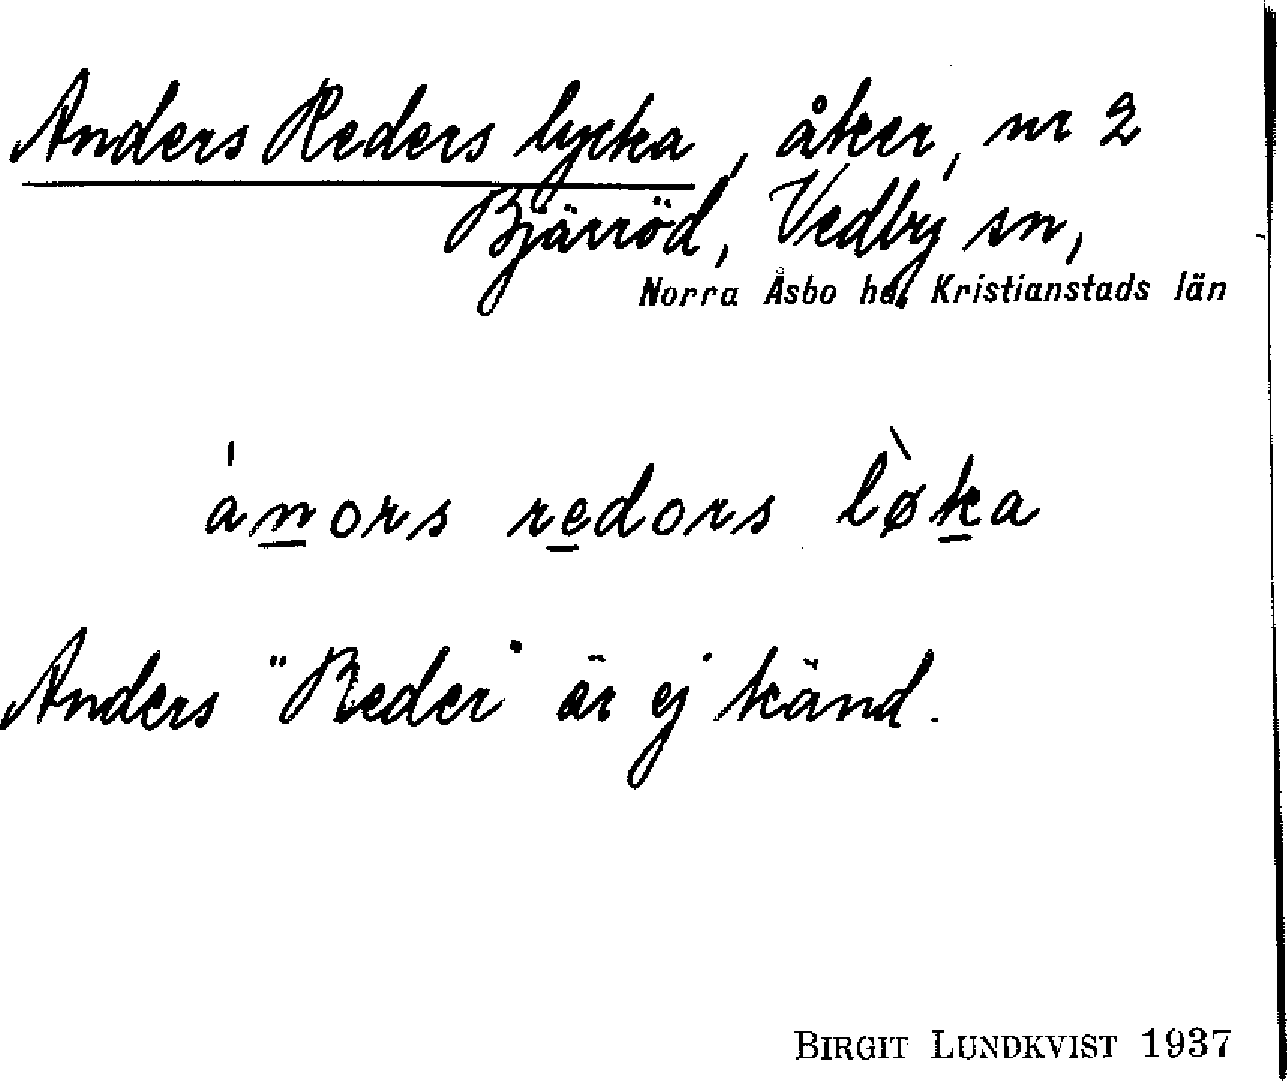 Anders Reders lycka, åker, nr 2
Bjärröd, Vedby sn,
Norra Åsbo hd. Kristianstads län
ánors redors lø̀ka
Anders "Reder" är ej känd.
BIRGIT LUNDKVIST 1937